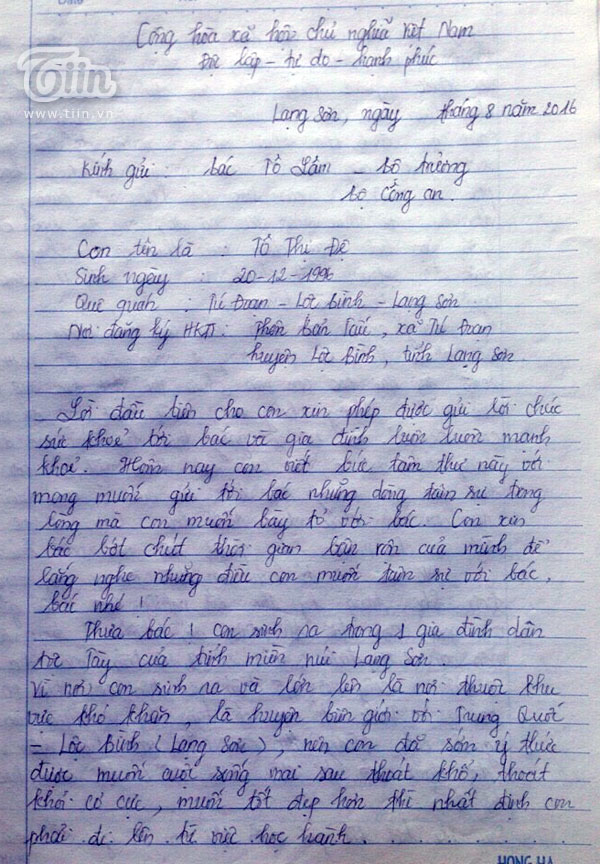 Cộng hòa xã hội chủ nghĩa Việt Nam
Độc lập - tự do - hạnh phúc
Tiin
www.tiin.vn
Lạng Sơn, ngày tháng 8 năm 2016
Kính gửi : bác Tô Lâm - bộ trưởng
bộ Công an.
Con tên là : Tô Thị Đệ
Sinh ngày : 20-12-1996
Quê quán : Tú Đoạn - Lộc Bình - Lạng Sơn
Nơi đăng ký HKTT: Thôn bản Tấu, xã Tú Đoạn
huyện Lộc Bình, tỉnh Lạng Sơn.
Lời đầu tiên cho con xin phép được gửi lời chúc
sức khoẻ tới bác và gia đình luôn luôn mạnh
khoẻ. Hôm nay con viết bức tâm thư này với
mong muốn gửi tới bác những dòng tâm sự trong
lòng mà con muốn bày tỏ với bác. Con xin
bác bớt chút thời gian bận rộn của mình để
lắng nghe những điều con muốn tâm sự với bác,
bác nhé !
Thưa bác ! con sinh ra trong 1 gia đình dân
tộc Tày của tỉnh miền núi Lạng Sơn.
Vì nơi con sinh ra và lớn lên là nơi thuộc khu
vực khó khăn, là huyện biên giới với Trung Quốc
- Lộc Bình (Lạng Sơn), nên con đã sớm ý thức
được muốn cuộc sống mai sau thoát khổ, thoát
khỏi cơ cực, muốn tốt đẹp hơn thì nhất định con
phải đi lên từ việc học hành.............
HONG HA